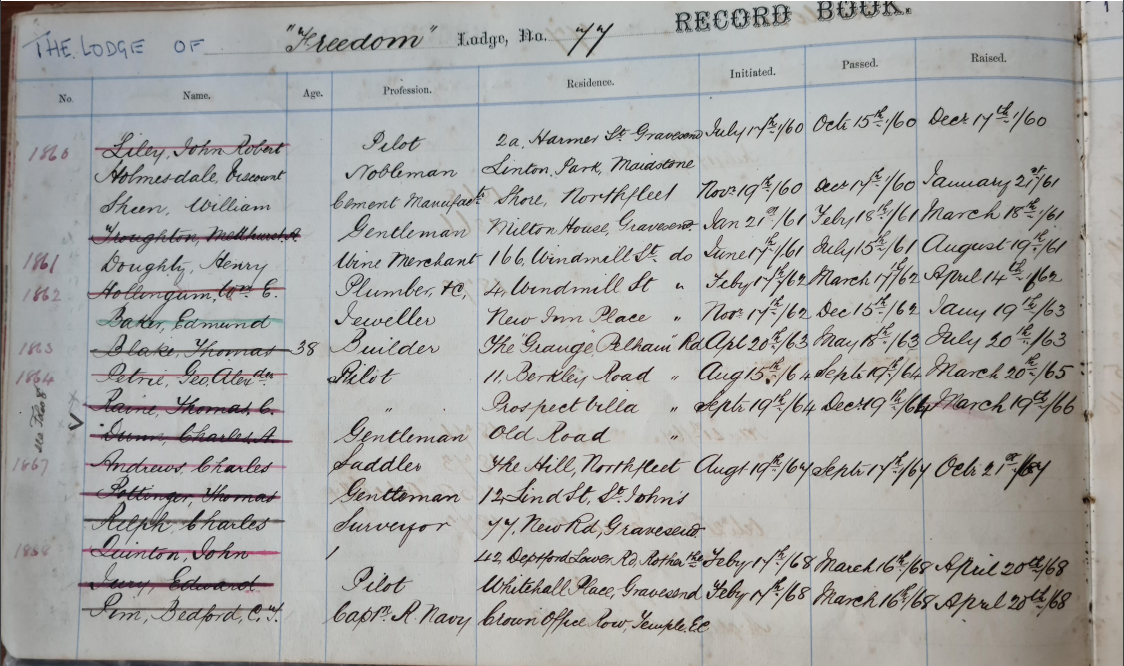 RECORD BOOK.
THE LODGE OF "Freedom" Lodge, No. 77
No. Name. Age. Profession. Residence. Initiated. Passed. Raised.
1860 Liley, John Robert Pilot 2a, Harmer St. Gravesend July 17th/60 Octr 15th/60 Decr 17th/60
Holmesdale, Viscount Nobleman Linton, Park, Maidstone
Sheen, William Cement Manufactr Shore, Northfleet Novr 19th/60 Decr 17th/60 January 21st/61
Troughton, Gentleman Milton House, Gravesend Jan 21st/61 Feby 18th/61 March 18th/61
1861 Doughty, Henry Wine Merchant 166, Windmill St. do June 17th/61 July 15th/61 August 19th/61
1862 Hollingum, Wm C. Plumber, &c, 4, Windmill St " Feby 17th/62 March 17th/62 April 14th/62
Baker, Edmund Jeweller New Inn Place " Novr 17th/62 Dec 15th/62 Jany 19th/63
1863 Blake, Thomas 38 Builder The Grange Pelham Rd Apl 20th/63 May 18th/63 July 20th/63
1864 Petrie, Geo, Alexder Pilot 11, Berkley Road " Aug 15th/64 Septr 19th/64 March 20th/65
Raine, Thomas, C. " Prospect Villa " Septr 19th/64 Decr 19th/64 March 19th/66
Dunn, Charles A. Gentleman Old Road "
1867 Andrews Charles Saddler The Hill, Northfleet Augt 19th/67 Septr 17th/67 Octr 21st/67
Pottinger, Thomas Gentleman 12 Lind St, St. John's
Relph, Charles Surveyor 77, New Rd, Gravesend
1868 Quinton, John 42, Deptford Lower Rd, Rotherhthe Feby 17th/68 March 16th/68 April 20th/68
Jury, Edward Pilot Whitehall Place, Gravesend Feby 17th/68 March 16th/68 April 20th/68
Pim, Bedford, C. T. Captn. R. Navy Crown Office Row, Temple, EC